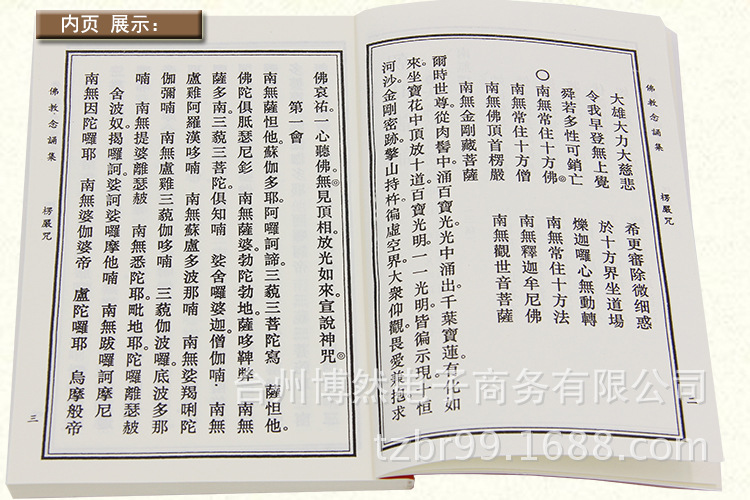 内页 展示：
佛教·念誦集 楞嚴咒
大雄大力大慈悲 希更審除微细惑
令我早登無上覺 於十方界坐道場
舜若多性可銷亡 爍迦囉心無動轉
○南無常住十方佛。 南無常住十方法
南無常住十方僧 南無釋迦牟尼佛
南無佛頂首楞嚴 南無觀世音菩薩
南無金剛藏菩薩
爾時世尊。從肉髻中。涌百寶光。光中涌出千葉寶蓮。有化如
來。坐寶花中。頂放十道。百寶光明。一一光明。皆徧示現十恒
河沙。金剛密跡。擎山持杵。徧虛空界。大衆仰觀。畏愛兼抱。求
二
佛哀祐。一心聽佛。無見頂相。放光如來。宣說神咒。
第一會
南無薩怛他。蘇伽多耶。阿囉訶諦。三藐三菩陀寫。 薩怛他。
佛陀俱胝瑟尼釤 南無薩婆。勃陀勃地。薩哆鞞弊 南無
薩多南。三藐三菩陀。俱知喃 娑舍囉婆迦。僧伽喃 南無
盧雞阿羅漢哆喃 南無蘇盧多波那喃 南無娑羯唎陀
伽彌喃 南無盧雞三藐伽哆喃 三藐伽波囉。底波多那
喃 南無提婆離瑟赧 南無悉陀耶。毗地耶。陀囉離瑟赧
舍波奴。揭囉訶。娑訶娑囉摩他喃 南無跋囉訶摩尼
南無因陀囉耶 南無婆伽婆帝 盧陀囉耶 烏摩般帝
佛教·念誦集 楞嚴咒
三
台州博然电子商务有限公司
tzbr99.1688.com